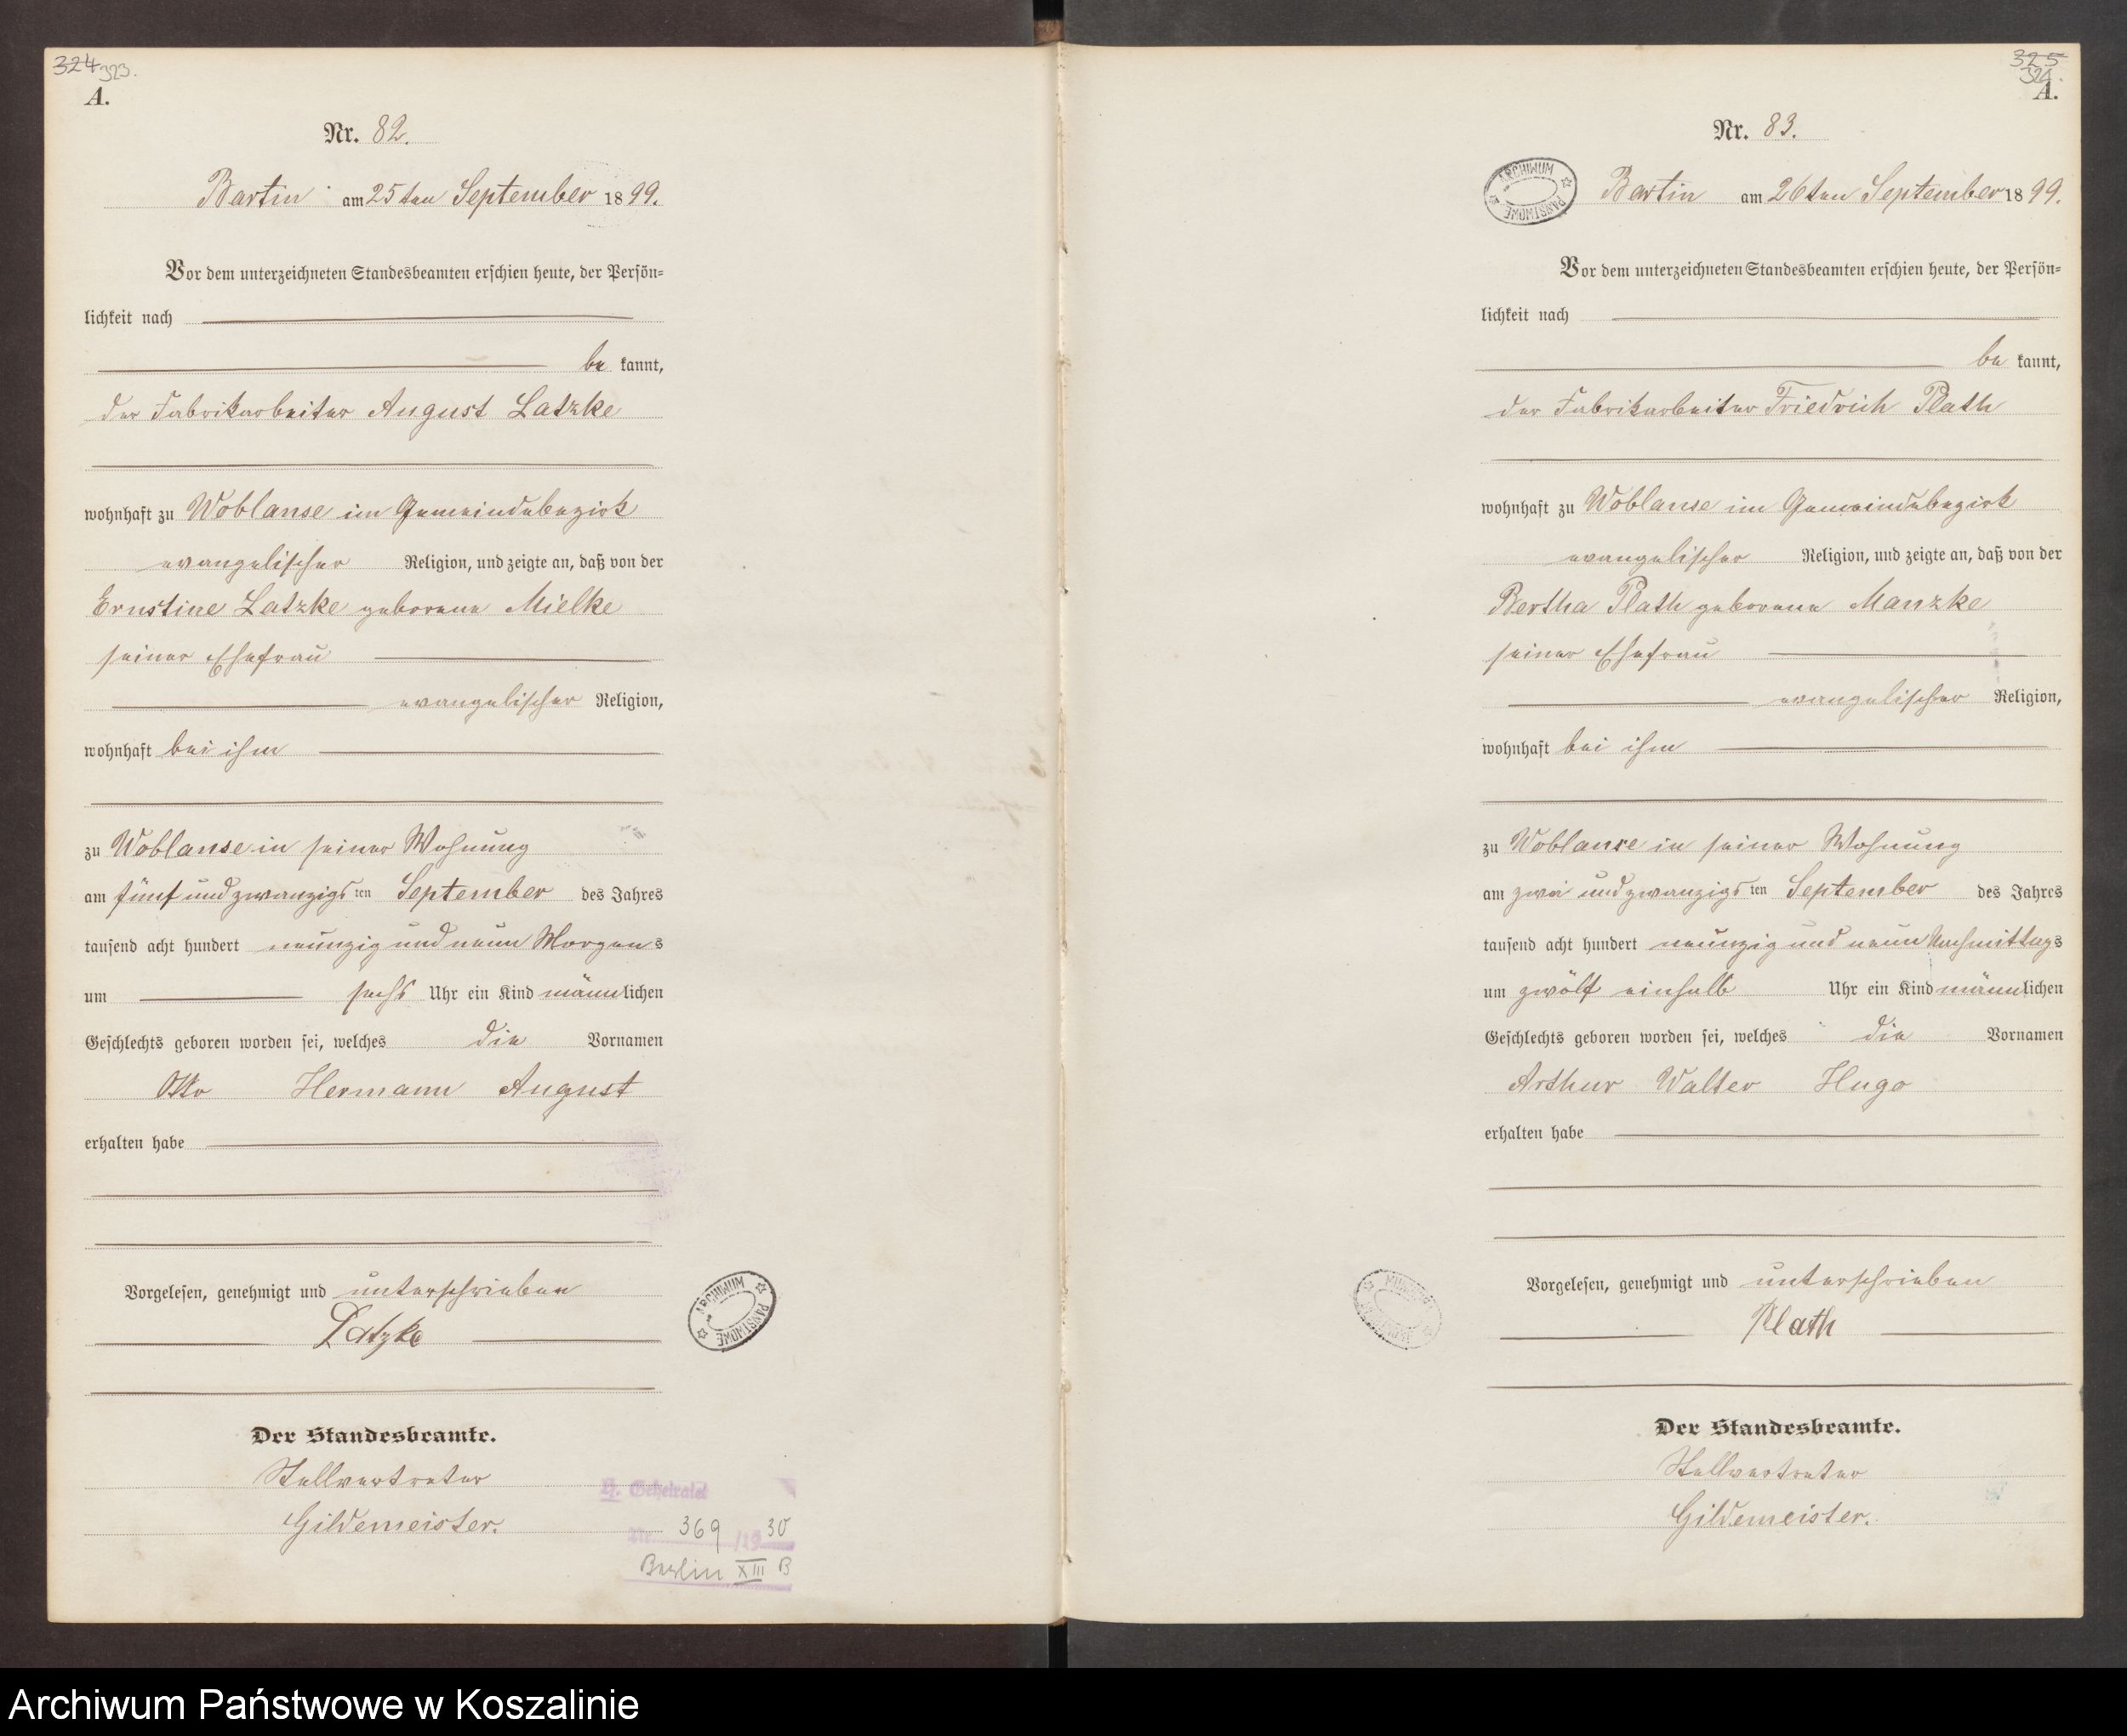 324 323.
A.
Nr. 82.
Bartin am 25ten September 1899.
Vor dem unterzeichneten Standesbeamten erschien heute, der Persön=
lichkeit nach
be kannt,
der Fabrikarbeiter August Latzke
wohnhaft zu Woblanse im Gemeindebezirk
evangelischer Religion, und zeigte an, daß von der
Ernstine Latzke geborene Mielke
seiner Ehefrau
evangelischer Religion,
wohnhaft bei ihm
zu Woblanse in seiner Wohnung
am fünf und zwanzigsten September des Jahres
tausend acht hundert neunzig und neun Morgens
um sechs Uhr ein Kind männlichen
Geschlechts geboren worden sei, welches die Vornamen
Otto Hermann August
erhalten habe
Vorgelesen, genehmigt und unterschrieben
Latzke
ARCHIWUM PAŃSTWOWE
Der Standesbeamte.
Stellvertreter
Gildemeister.
H. Geheiratet
Nr. 369 /1930
Berlin XIII B
325
324.
A.
Nr. 83.
ARCHIWUM PAŃSTWOWE
Bartin am 26ten September 1899.
Vor dem unterzeichneten Standesbeamten erschien heute, der Persön=
lichkeit nach
be kannt,
der Fabrikarbeiter Friedrich Plath
wohnhaft zu Woblanse im Gemeindebezirk
evangelischer Religion, und zeigte an, daß von der
Bertha Plath geborene Manzke
seiner Ehefrau
evangelischer Religion,
wohnhaft bei ihm
zu Woblanse in seiner Wohnung
am zwei und zwanzigsten September des Jahres
tausend acht hundert neunzig und neun Nachmittags
um zwölf einhalb Uhr ein Kind männlichen
Geschlechts geboren worden sei, welches die Vornamen
Arthur Walter Hugo
erhalten habe
Vorgelesen, genehmigt und unterschrieben
Plath
Der Standesbeamte.
Stellvertreter
Gildemeister.
Archiwum Państwowe w Koszalinie